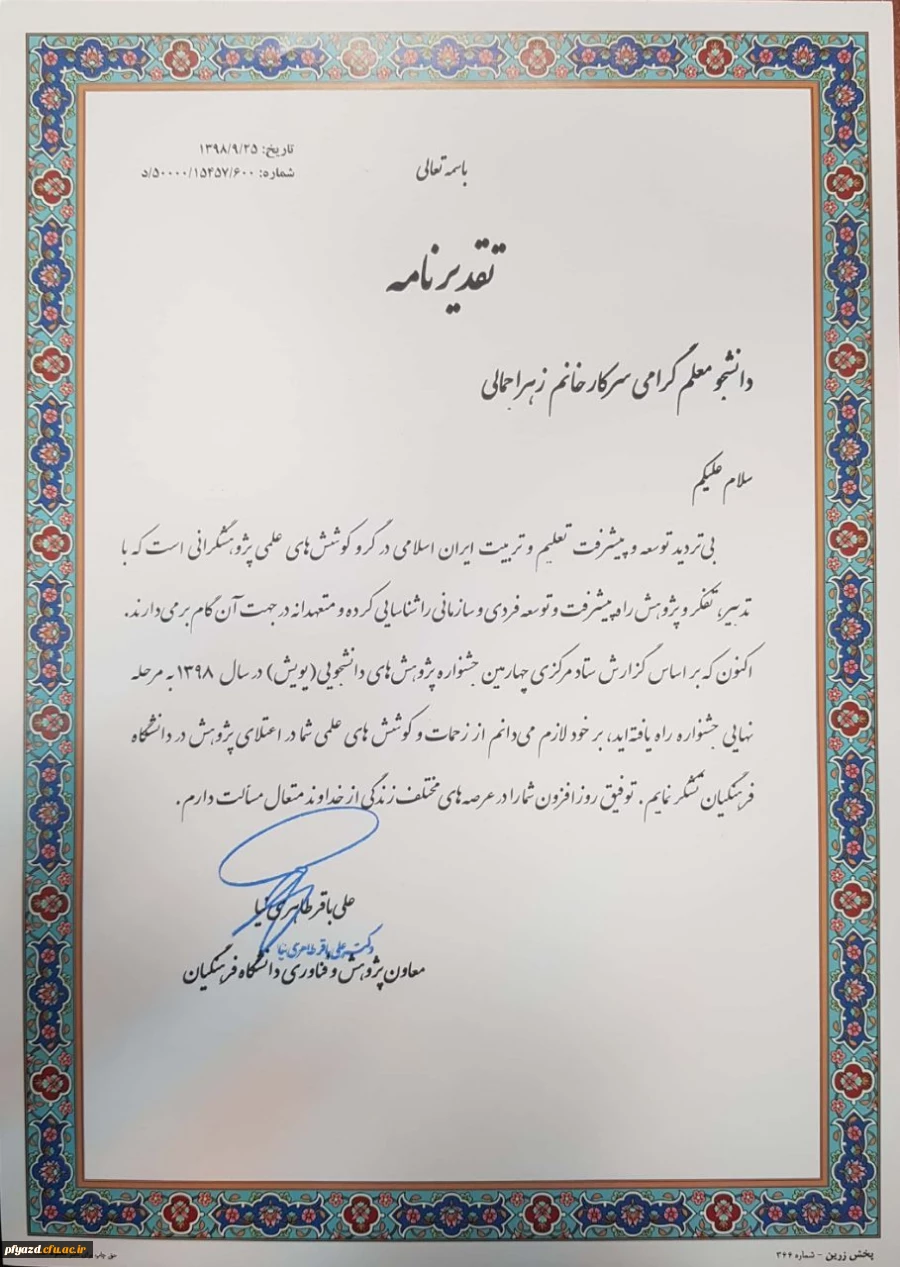 تاریخ: ۱۳۹۸/۹/۲۵
شماره: ۵۰۰۰۰/۱۵۴۵۷/۶۰۰/د
باسمه تعالی
تقدیرنامه
دانشجو معلم گرامی سرکار خانم زهرا جمالی
سلام علیکم
بی‌تردید توسعه و پیشرفت تعلیم و تربیت ایران اسلامی در گرو کوشش‌های علمی پژوهشگرانی است که با
تدبیر، تفکر و پژوهش راه پیشرفت و توسعه فردی و سازمانی را شناسایی کرده و متعهدانه در جهت آن گام برمی‌دارند.
اکنون که بر اساس گزارش ستاد مرکزی چهارمین جشنواره پژوهش‌های دانشجویی(پویش) در سال ۱۳۹۸ به مرحله
نهایی جشنواره راه یافته‌اید، بر خود لازم می‌دانم از زحمات و کوشش های علمی شما در اعتلای پژوهش در دانشگاه
فرهنگیان تشکر نمایم. توفیق روزافزون شما را در عرصه های مختلف زندگی از خداوند متعال مسألت دارم.
علی باقر طاهری نیا
دکتر علی باقر طاهری نیا
معاون پژوهش و فناوری دانشگاه فرهنگیان
پخش زرین - شماره ۳۴۴
حق چاپ
pfyazd.cfu.ac.ir